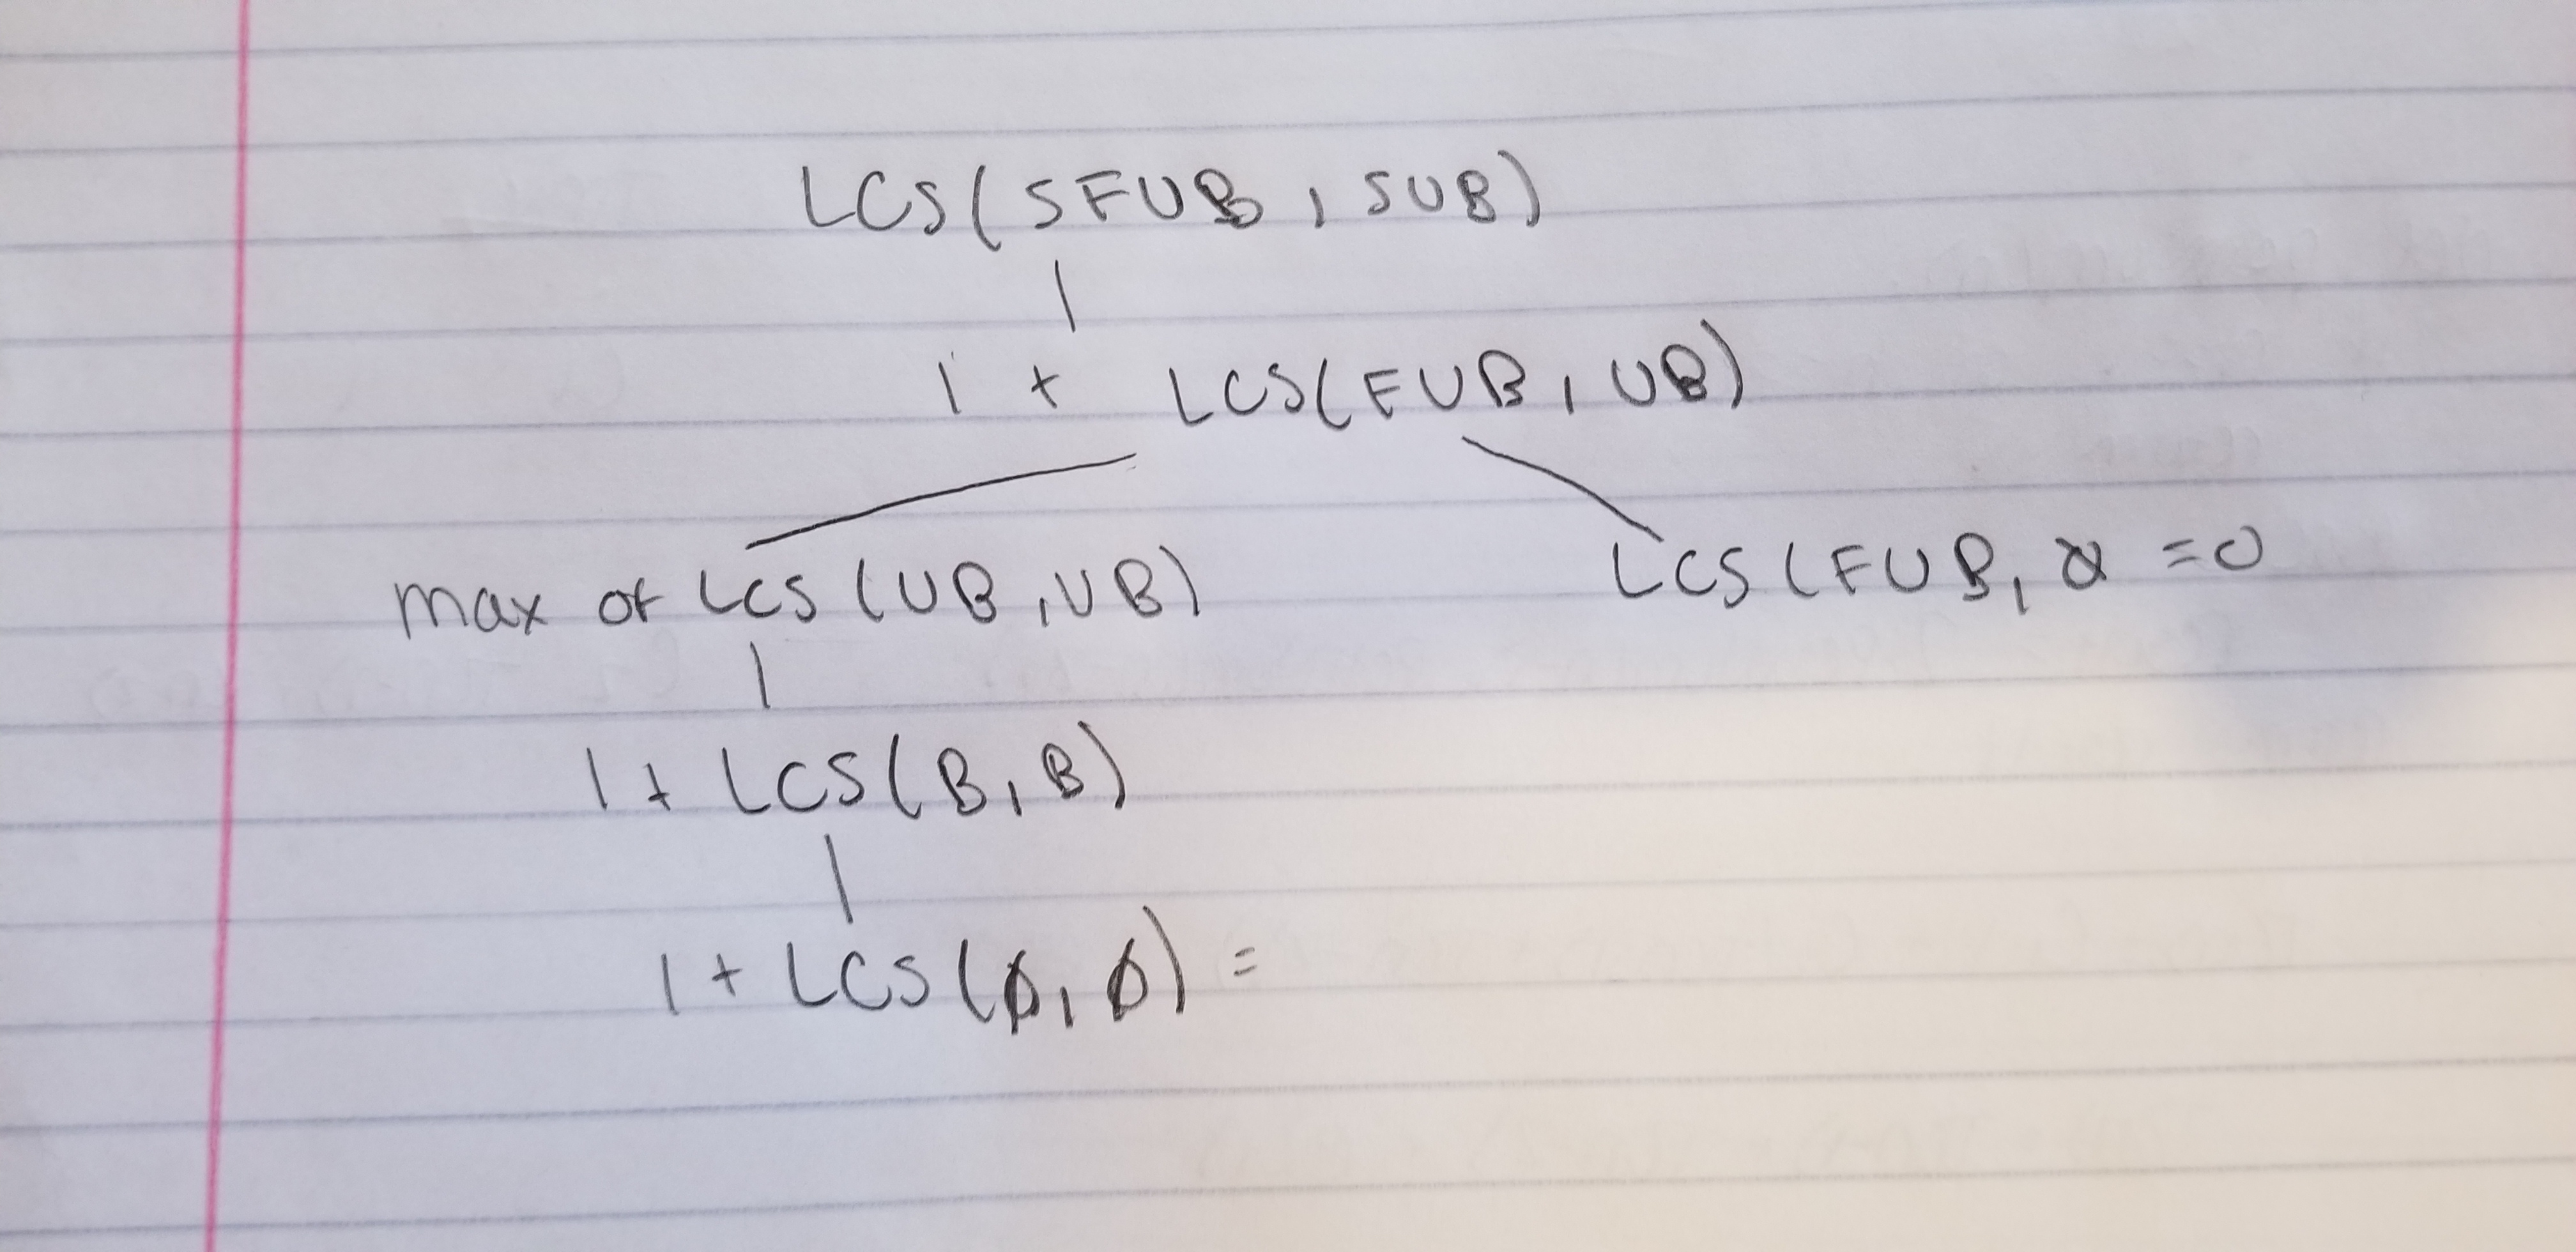 LCS(SFUB, SUB)
1 + LCS(FUB, UB)
max of LCS(UB, UB) LCS(FUB, =0
1 + LCS(B, B)
1 + LCS(ø, ø) =